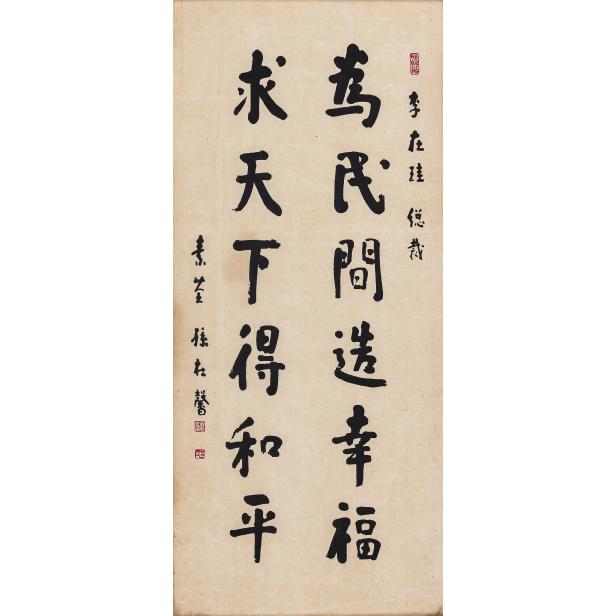 李在珪 總裁
為民間造幸福
求天下得和平
素荃 孫在馨